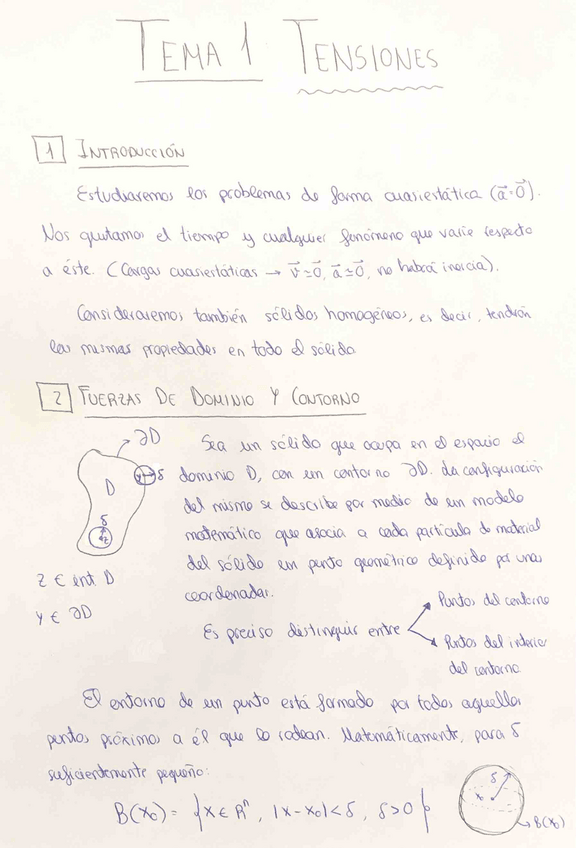 TEMA 1 TENSIONES
1 INTRODUCCIÓN
Estudiaremos los problemas de forma cuasiestática (a⃗≃0⃗).
Nos quitamos el tiempo y cualquier fenómeno que varíe respecto
a éste. (Cargas cuasiestáticas → v⃗≃0⃗, a⃗≃0⃗, no habrá inercia).
Consideraremos también sólidos homogéneos, es decir, tendrán
las mismas propiedades en todo el sólido
2 FUERZAS DE DOMINIO Y CONTORNO
∂D
D
y
δ
δ
z
z ∈ int D
y ∈ ∂D
Sea un sólido que ocupa en el espacio el
dominio D, con un contorno ∂D. La configuración
del mismo se describe por medio de un modelo
matemático que asocia a cada partícula de material
del sólido un punto geométrico definido por unas
coordenadas.
Es preciso distinguir entre
Puntos del contorno
Puntos del interior
del contorno
El entorno de un punto está formado por todos aquellos
puntos próximos a él que lo rodean. Matemáticamente, para δ
suficientemente pequeño:
B(x₀) = {x ∈ Rⁿ, |x-x₀|<δ, δ>0}
δ
x₀
B(x₀)